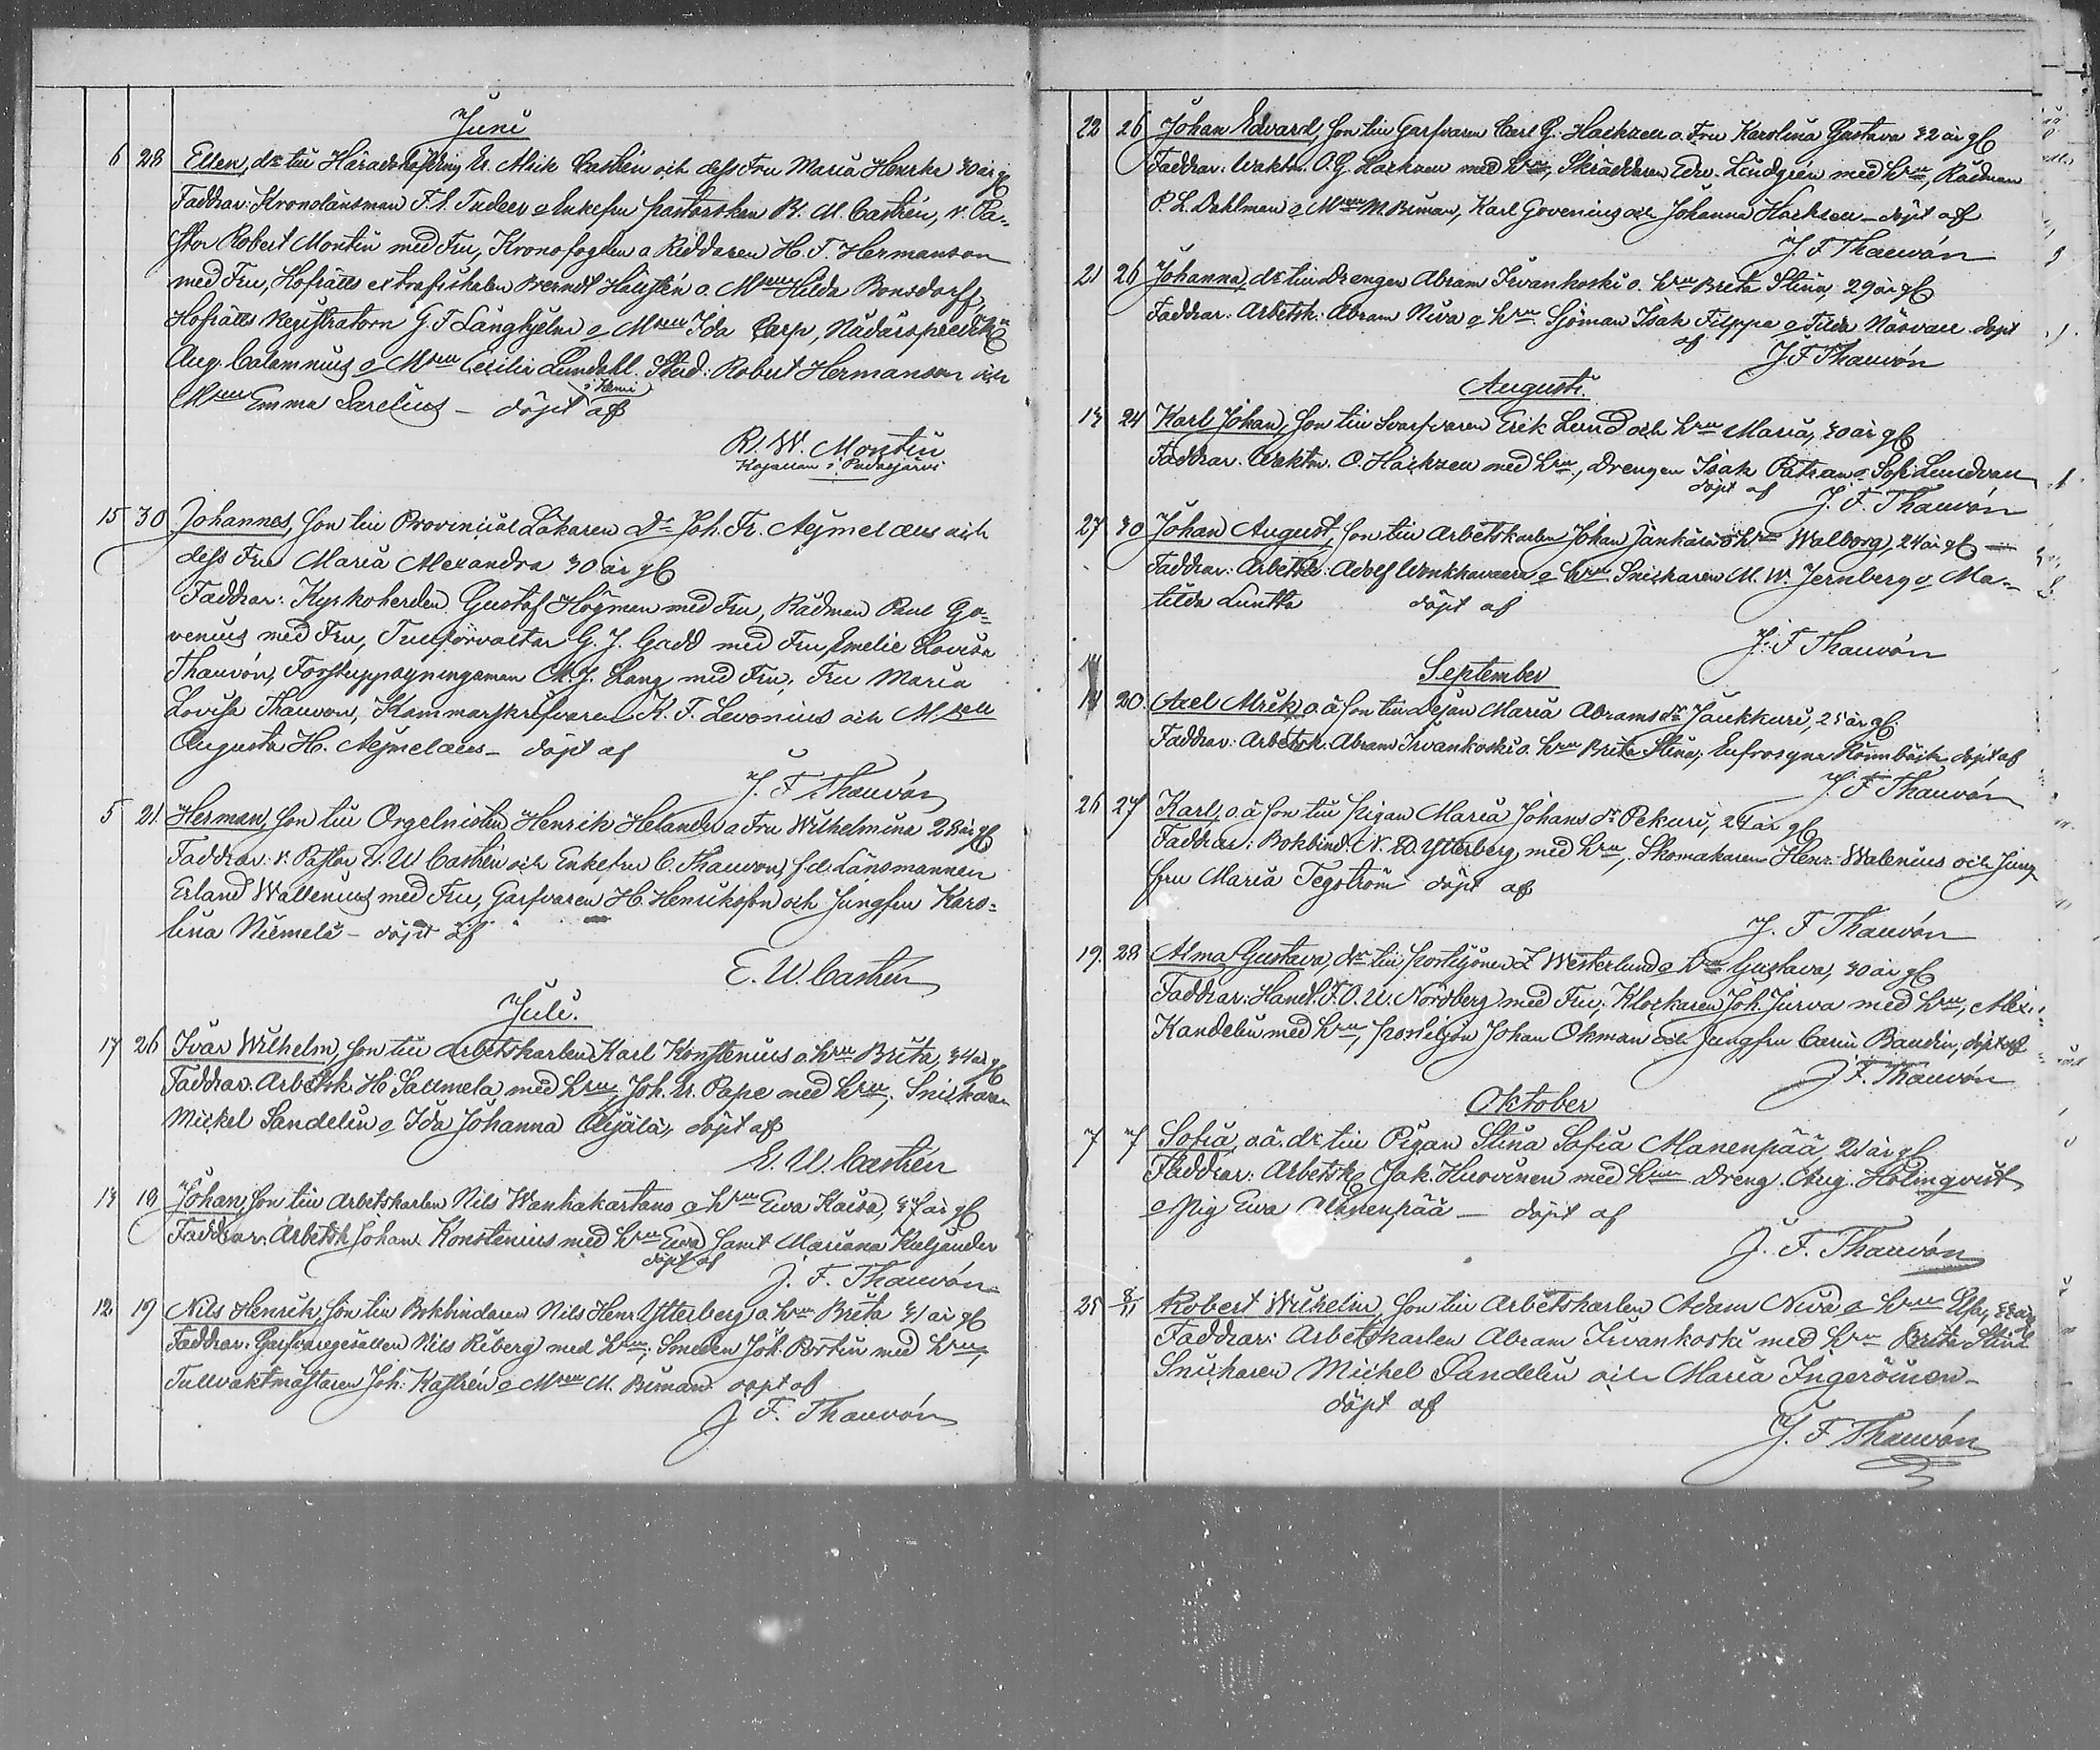 Juni
6 28 Ellen, dr till Häradshöfding U. Alrik Castrén och dess Fru Maria Henrika 30 år gl
Faddrar: Kronolänsman F. A. Tudeer o Enkefru pastorskan B. M. Castrén, v. Pa-
stor Robert Montin med Fru, Kronofogden o Riddaren H. F. Hermanson
med Fru, Hofrätts extra fiskalen Berndt Hallstén o. Msell Hilda Bonsdorff,
Hofrätts Registratorn G. F. Långhjelm o Msell Ida Carp, Nådårspredik
Aug. Calamnius o Msell Cecilia Lundahl. Stud: Robert Hermanson och
Msell Emma Sarelius – döpt i Kemi af
R. W. Montin
Kapellan i Pudasjärvi
15 30 Johannes, son till Provincial Läkaren Dr Joh. Fr. Aejmelæus och
dess Fru Maria Alexandra 30 år gl
Faddrar: Kyrkoherden Gustaf Högman med Fru, Rådman Paul Go-
venius med Fru, Tullförvaltar G. J. Gadd med Fru Emelie Lovisa
Thauvón, Forstuppsyningsman M. J. Lang med Fru, Fru Maria
Lovisa Thauvon, Kammarskrifvaren K. F. Levonius och Msell
Augusta H. Aejmelæus – döpt af
J. F. Thauvón
5 21 Herman, son till Orgelnisten Henrik Helander o Fru Wilhelmina 28 år gl
Faddrar: v. Pastor E. W. Castrén och Enkefru C. Thauvon, f.d. Länsmannen
Erland Wallenius med Fru, Garfvaren H. Henriksson och Jungfru Karo-
lina Niemelä – döpt af
E. W. Castrén
Juli.
17 26 Ivar Wilhelm, son till Arbetskarlen Karl Konstenius o hru Brita, 34 år gl
Faddrar: Arbetsk. H. Sallmela med hru, Joh. U. Pape med hru, Snickaren
Mickel Sandelin o Ida Johanna Alijälä, döpt af
E. W. Castrén
13 19 Johan, son till Arbetskarlen Nils Wanhakartano o hru Ewa Kaisa, 37 år gl
Faddrar: Arbetsk Johan Konstenius med hru Ewa samt Mariana Kiljander
döpt af
J. F. Thauvón
12 19 Nils Henrik, son till Bokbindaren Nils Henr. Ytterberg o hru Brita 31 år gl
Faddrar: Garfvaregesällen Nils Riberg med hru; Smeden Joh. Portin med hru,
Tullvaktmästaren Joh. Kastrén o Msell M. Biman döpt af
J. F. Thauvón
22 26 Johan Edvard, son till Garfvaren Carl G. Hackzell o. Fru Karolina Gustava 32 år gl
Faddrar: Waktm. O. G. Hackzell med hru, Skräddaren Edv. Lindgrén med hru, Rådman
P. L. Dahlman o Msell M. Biman, Karl Govenius och Johanna Hackzell – döpt af
J. F. Thauvón
21 26 Johanna, dr till Drengen Abram Irvankoski o. hru Brita Stina, 29 år gl
Faddrar: Arbetsk: Abram Niva o hru. Sjöman Isak Filppa o Tilda Näsvall. döpt
af J. F. Thauvón
Augusti.
13 24 Karl Johan, son till Svarfvaren Erik Lund och hru Maria, 30 år gl
Faddrar: Waktm. O. Hackzell med hru, Drengen Isak Ratsan o Sofi Lundvan
döpt af J. F. Thauvón
27 30 Johan August, son till Arbetskarlen Johan Jänkälä o hru Walborg, 24 år gl
Faddrar: Arbetsk: Adolf Wonkhavaara o hru Snickaren M. W. Jernberg o Ma-
tilda Luntta döpt af
J. F. Thauvón
September
14 20 Axel Alrik, o ä son till Pejan Maria Abrams dr Jaukkuri, 25 år gl.
Faddrar: Arbetsk. Abram Irvankoski o. hru Brita Stina; Eufrosyne Rönnbäck döpt af
J. F. Thauvón
26 27 Karl, o. ä son till pigan Maria Johans dr Pekuri, 24 år gl
Faddrar: Bokbind. N. D. Ytterberg med hru, Skomakaren Henr. Walenius och Jung-
fru Maria Tegström döpt af
J. F. Thauvón
19 28 Alma Gustava, dr till postiljonen Z Westerlund o hru Gustava, 30 år gl
Faddrar: Handl. F. O. U. Nordberg med Fru; Klockaren Joh. Jurva med hru, Alex.
Kandelin med hru, postiljon Johan Okman och Jungfru Carin Baudin, döpt af
J. F. Thauvón
Oktober
7 7 Sofia, o.ä. dr till Pigan Stina Sofia Alanenpää, 21 år gl
Faddrar: Arbetsk Jak. Huovinen med hru Dreng. Aug. Holmqvist
o Pig Ewa Alanenpää – döpt af
J. F. Thauvón
25 8/11 Robert Wilhelm, son till Arbetskarlen Adam Niva o hru Elsa, 33 år
Faddrar: Arbetskarlen Abram Irvankoski med hru Brita Stina
Snickaren Mickel Sandelin och Maria Ingeröinen –
döpt af
J. F. Thauvón